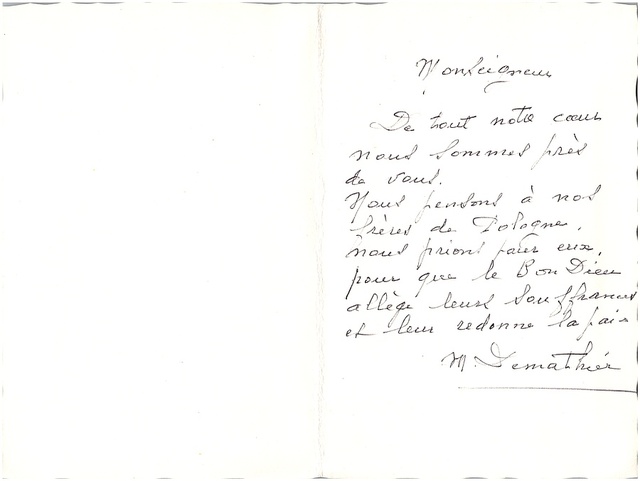 Monseigneur
De tout notre cœur
nous sommes près
de vous.
Nous pensons à nos
frères de Pologne,
nous prions pour eux,
pour que le Bon Dieu
allège leurs souffrances
et leur redonne la paix
M. Demathieu